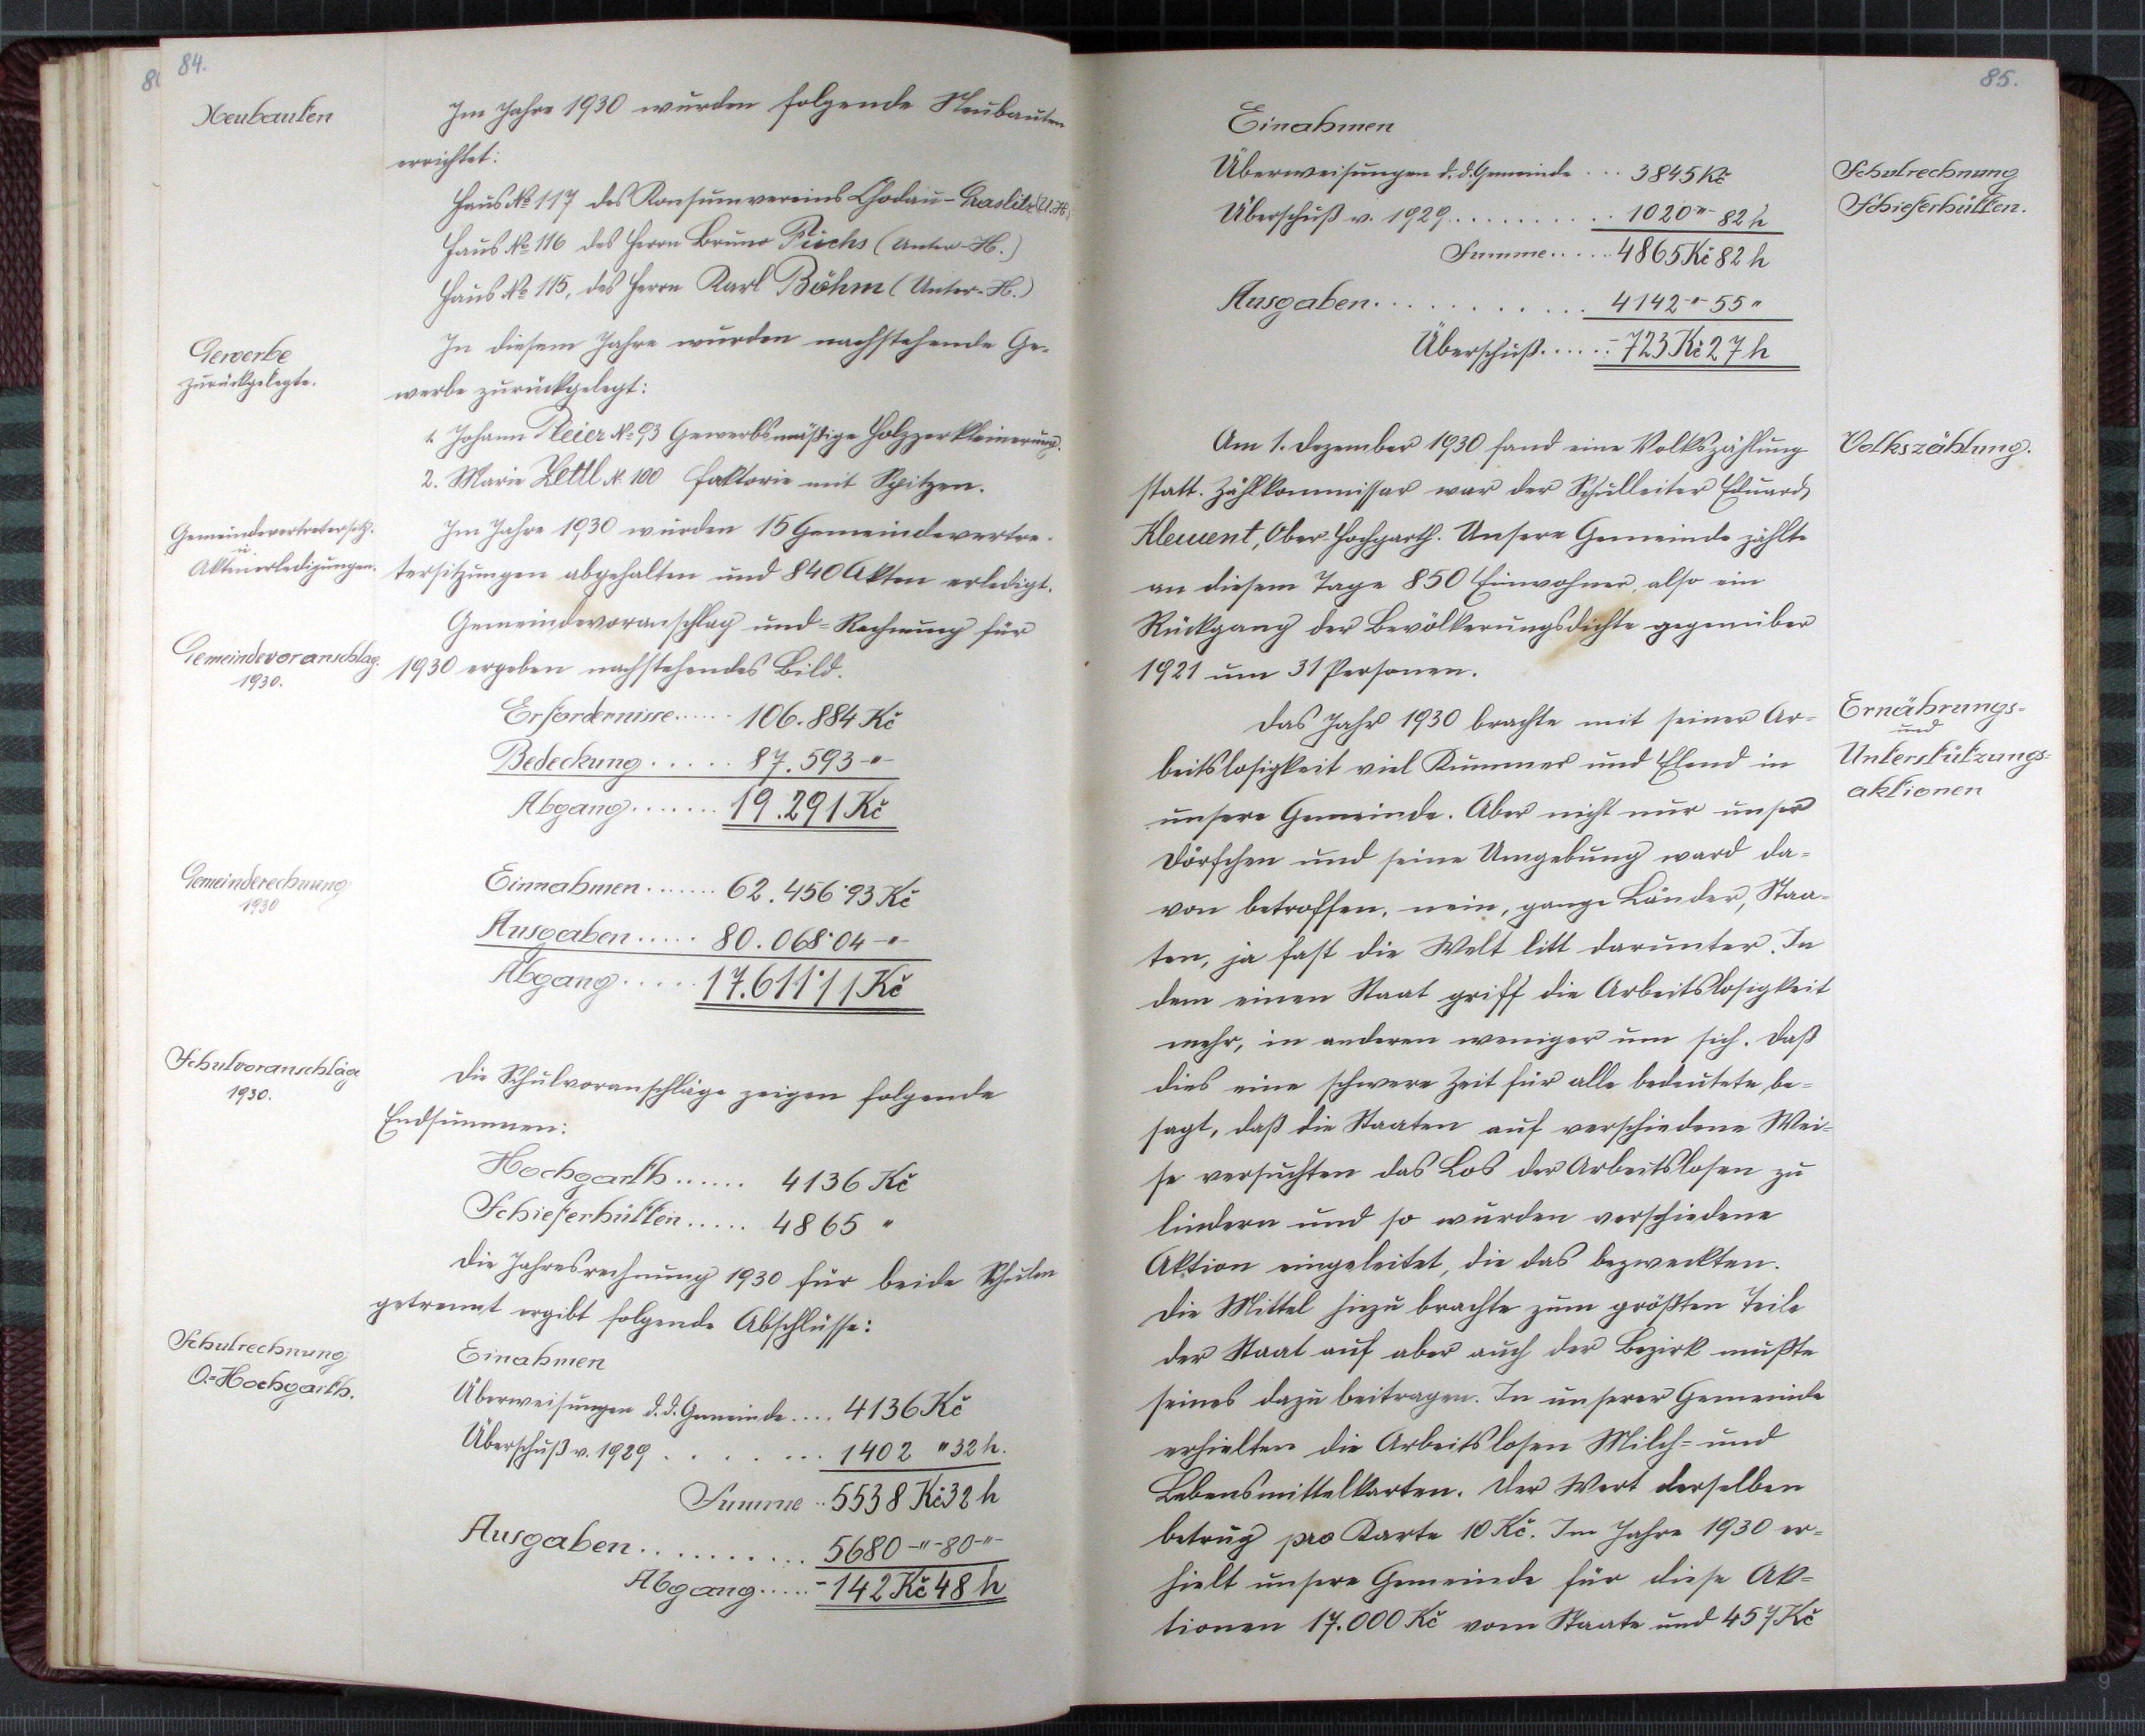 84.
Neubauten
Im Jahre 1930 wurden folgende Neubauten
errichtet:
Haus № 117 des Konsumvereins Chodau-Graslitz (U.H.)
Haus № 116 des Herrn Bruno Fuchs (Unter-H.)
Haus № 115, des Herrn Karl Böhm (Unter-H.)
Gewerbe
zurückgelegte.
In diesem Jahre wurden nachstehende Ge-
werbe zurückgelegt:
1. Johann Pleier № 93 Gewerbsmäßige Holzzerkleinerung.
2. Marie Zettl N. 100 Faktorie mit Spitzen.
Gemeindevertretersitz.
u.
Aktenerledigungen.
Im Jahre 1930 wurden 15 Gemeindevertre-
tersitzungen abgehalten und 840 Akten erledigt.
Gemeindevoranschlag
1930.
Gemeindevoranschlag und=Rechnung für
1930 ergeben nachstehendes Bild.
Erfordernisse...... 106.884 Kč
Bedeckung..... 87.593 -"-
Abgang....... 19.291 Kč
Gemeinderechnung
1930
Einnahmen....... 62.456·93 Kč
Ausgaben..... 80.068·04 -"-
Abgang..... 17.611·11 Kč
Schulvoranschläge
1930.
Die Schulvoranschläge zeigen folgende
Endsummen:
Hochgarth...... 4136 Kč
Schieferhütten..... 4865 "
Die Jahresrechnung 1930 für beide Schulen
getrennt ergibt folgende Abschlüsse:
Schulrechnung
O.=Hochgarth.
Einahmen
Überweisungen d.d. Gemeinde.... 4136 Kč
Überschuß v. 1929........ 1402 " 32 h.
Summe.. 5538 Kč 32 h
Ausgaben........... 5680 -"- 80 -"-
Abgang..... - 142 Kč 48 h
85.
Einahmen
Schulrechnung
Schieferhütten.
Überweisungen d.d. Gemeinde... 3845 Kč
Überschuß v. 1929.......... 1020 -"- 82 h
Summe..... 4865 Kč 82 h
Ausgaben........... 4142 -"- 55 "
Überschuß..... - 723 Kč 27 h
Volkszählung.
Am 1. Dezember 1930 fand eine Volkszählung
statt. Zählkommissar war der Schulleiter Eduard
Klement, Ober-Hochgarth. Unsere Gemeinde zählte
an diesem Tage 850 Einwohner, also ein
Rückgang der Bevölkerungsdichte gegenüber
1921 um 31 Personen.
Ernährungs-
und
Unterstützungs-
aktionen
Das Jahr 1930 brachte mit seiner Ar-
beitslosigkeit viel Kummer und Elend in
unsere Gemeinde. Aber nicht nur unser
Dörfchen und seine Umgebung ward da-
von betroffen, nein, ganze Länder, Staa-
ten, ja fast die Welt litt darunter. In
dem einen Staat griff die Arbeitslosigkeit
mehr, in anderen weniger um sich. Daß
dies eine schwere Zeit für alle bedeutete, be-
sagt, daß die Staaten auf verschiedene Wei-
se versuchten das Los der Arbeitslosen zu
lindern und so wurden verschiedene
Aktion eingeleitet, die das bezweckten.
Die Mittel hiezu brachte zum größten Teile
der Staat auf aber auch der Bezirk mußte
seines dazu beitragen. In unserer Gemeinde
erhielten die Arbeitslosen Milch- und
Lebensmittelkarten. Der Wert derselben
betrug pro Karte 10 Kč. Im Jahre 1930 er-
hielt unsere Gemeinde für diese Ak-
tionen 17.000 Kč vom Staate und 457 Kč